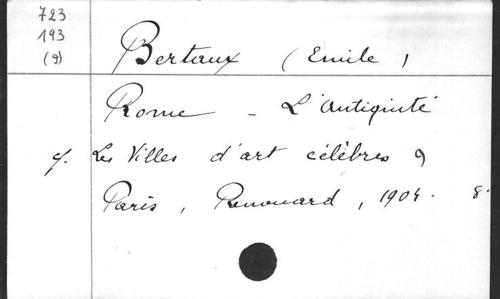 723
193
(9)
Bertaux (Emile)
Rome - L'Antiquité
cf. Les Villes d'art célèbres 9
Paris, Renouard, 1904. 8°